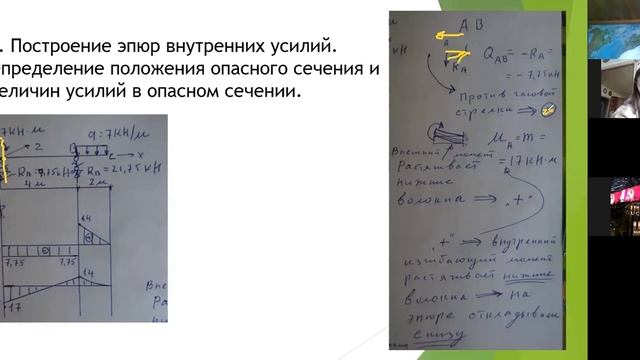 . Построение эпюр внутренних усилий.
пределение положения опасного сечения и
еличин усилий в опасном сечении.
7кН·м
2
q=7кН/м
x
R_B=21,75кН
4м
2м
14
7,75
7,75
14
17
A B
Q_AB = -R_A =
= -7,75кН
R_A
Против часовой
стрелки ⇒
M_A = m =
= 17кН·м
Внешний момент
Растягивает
нижние
волокна ⇒ "+"
"+" ⇒ внутренний
изгибающий момент
растягивает нижние
волокна ⇒ на
эпюре откладываем
снизу